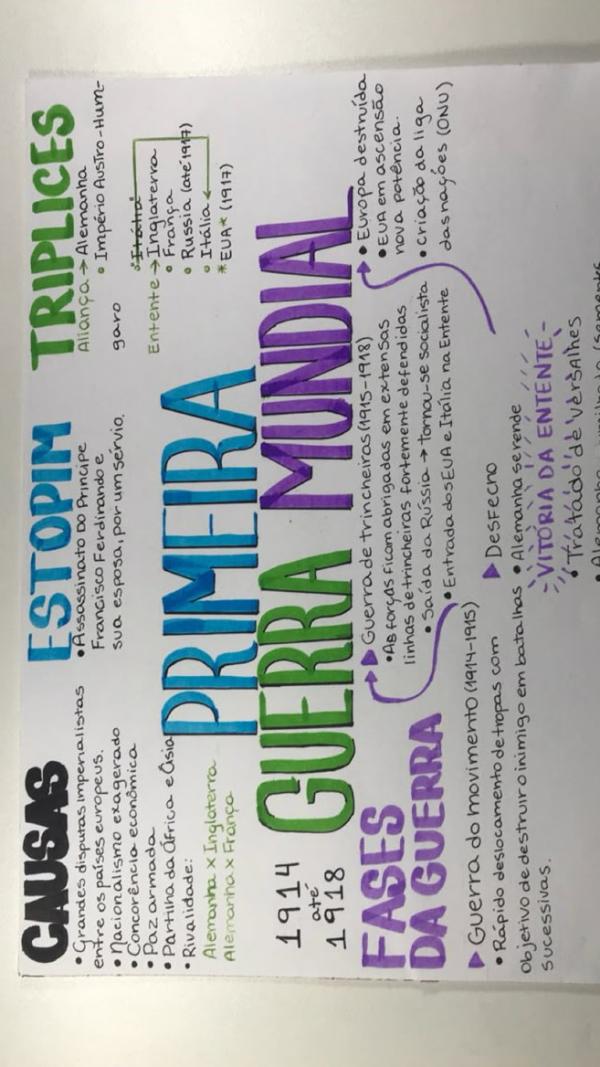 CAUSAS
• Grandes disputas imperialistas
entre os países europeus.
• Nacionalismo exagerado
• Concorência econômica
• Paz armada
• Partilha da África e Ásia
• Rivalidade:
Alemanha x Inglaterra
Alemanha x França
ESTOPIM
• Assassinato do Príncipe
Francisco Ferdinando e
sua esposa, por um sérvio.
TRIPLICES
Aliança → Alemanha
• Império Austro-Hun-
garo
• Itália
Entente → Inglaterra
• França
• Russia (até 1917)
• Itália
* EUA* (1917)
1914
até
1918
PRIMEIRA
GUERRA MUNDIAL
FASES
DA GUERRA
▶ Guerra do movimento (1914-1915)
• Rápido deslocamento de tropas com
objetivo de destruir o inimigo em batalhas
sucessivas.
▶ Guerra de trincheiras (1915-1918)
• As forças ficam abrigadas em extensas
linhas de trincheiras fortemente defendidas
• Saída da Rússia → tornou-se socialista
• Entrada dos EUA e Itália na Entente
▶ Desfecho
• Alemanha se rende
VITÓRIA DA ENTENTE
• Tratado de Versalhes
• Alemanha
• Europa destruída
• EUA em ascensão
nova potência.
• Criação da liga
das nações (ONU)